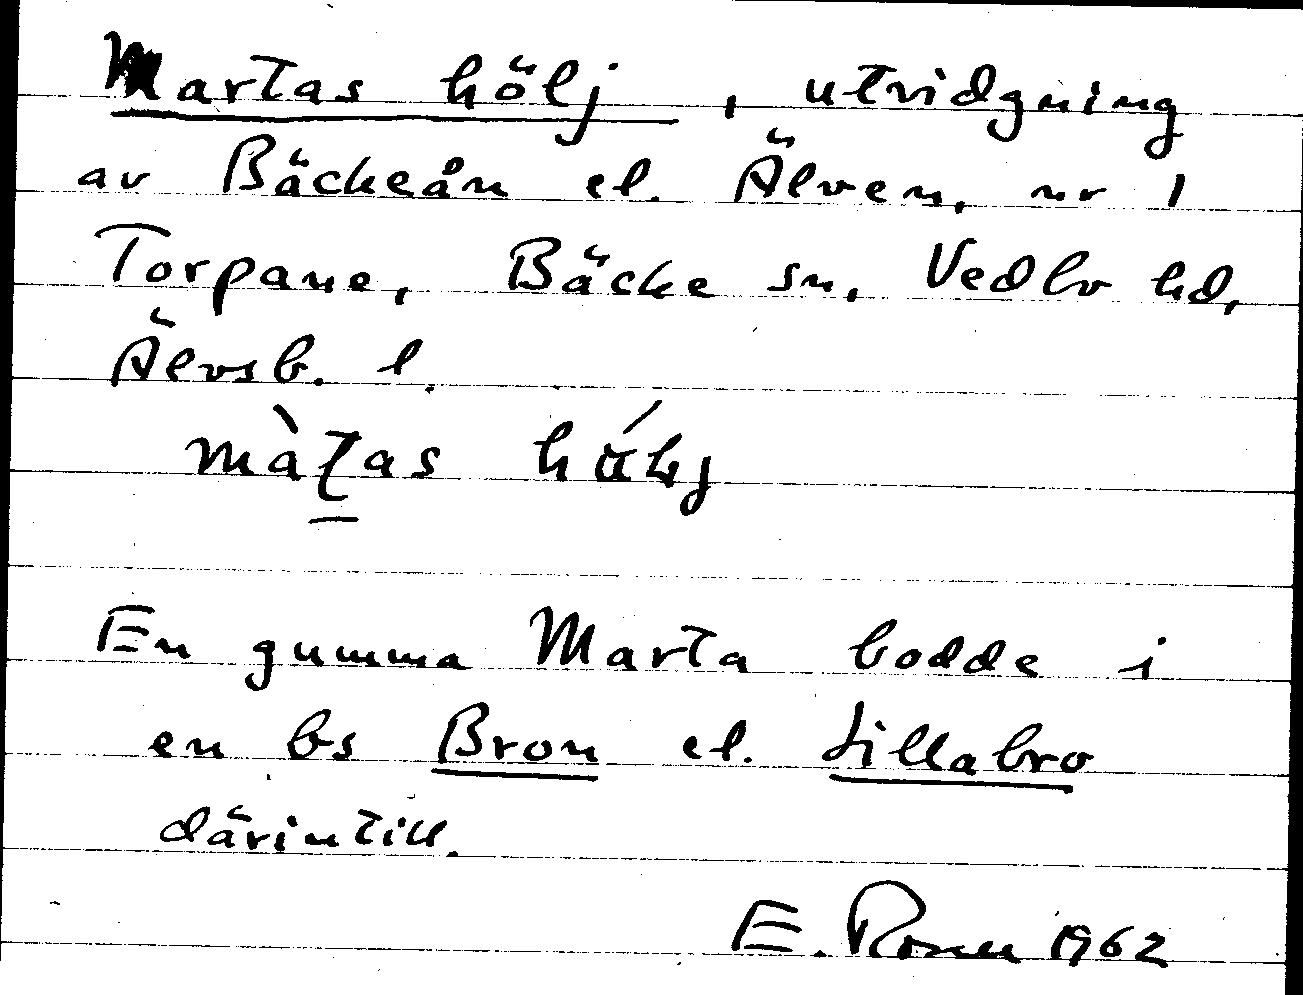 Martas hölj, utvidgning
av Bäckeån el. Älven, nr 1
Torpane, Bäcke sn, Vedbo hd,
Älvsb. l.
En gumma Marta bodde i
en bs Bron el. Lillabro
därintill.
E. Rosell 1962